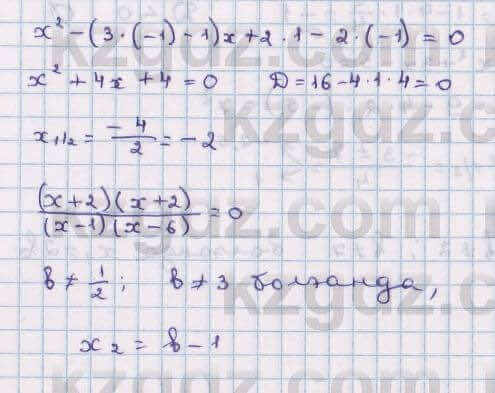 x² - (3·(-1) - 1)x + 2·1 - 2·(-1) = 0
x² + 4x + 4 = 0 D = 16 - 4·1·4 = 0
x₁,₂ = -4/2 = -2
(x+2)(x+2)/(x-1)(x-6) = 0
b ≠ 1/2; b ≠ 3 болғанда,
x₂ = b - 1
kzgdz.com